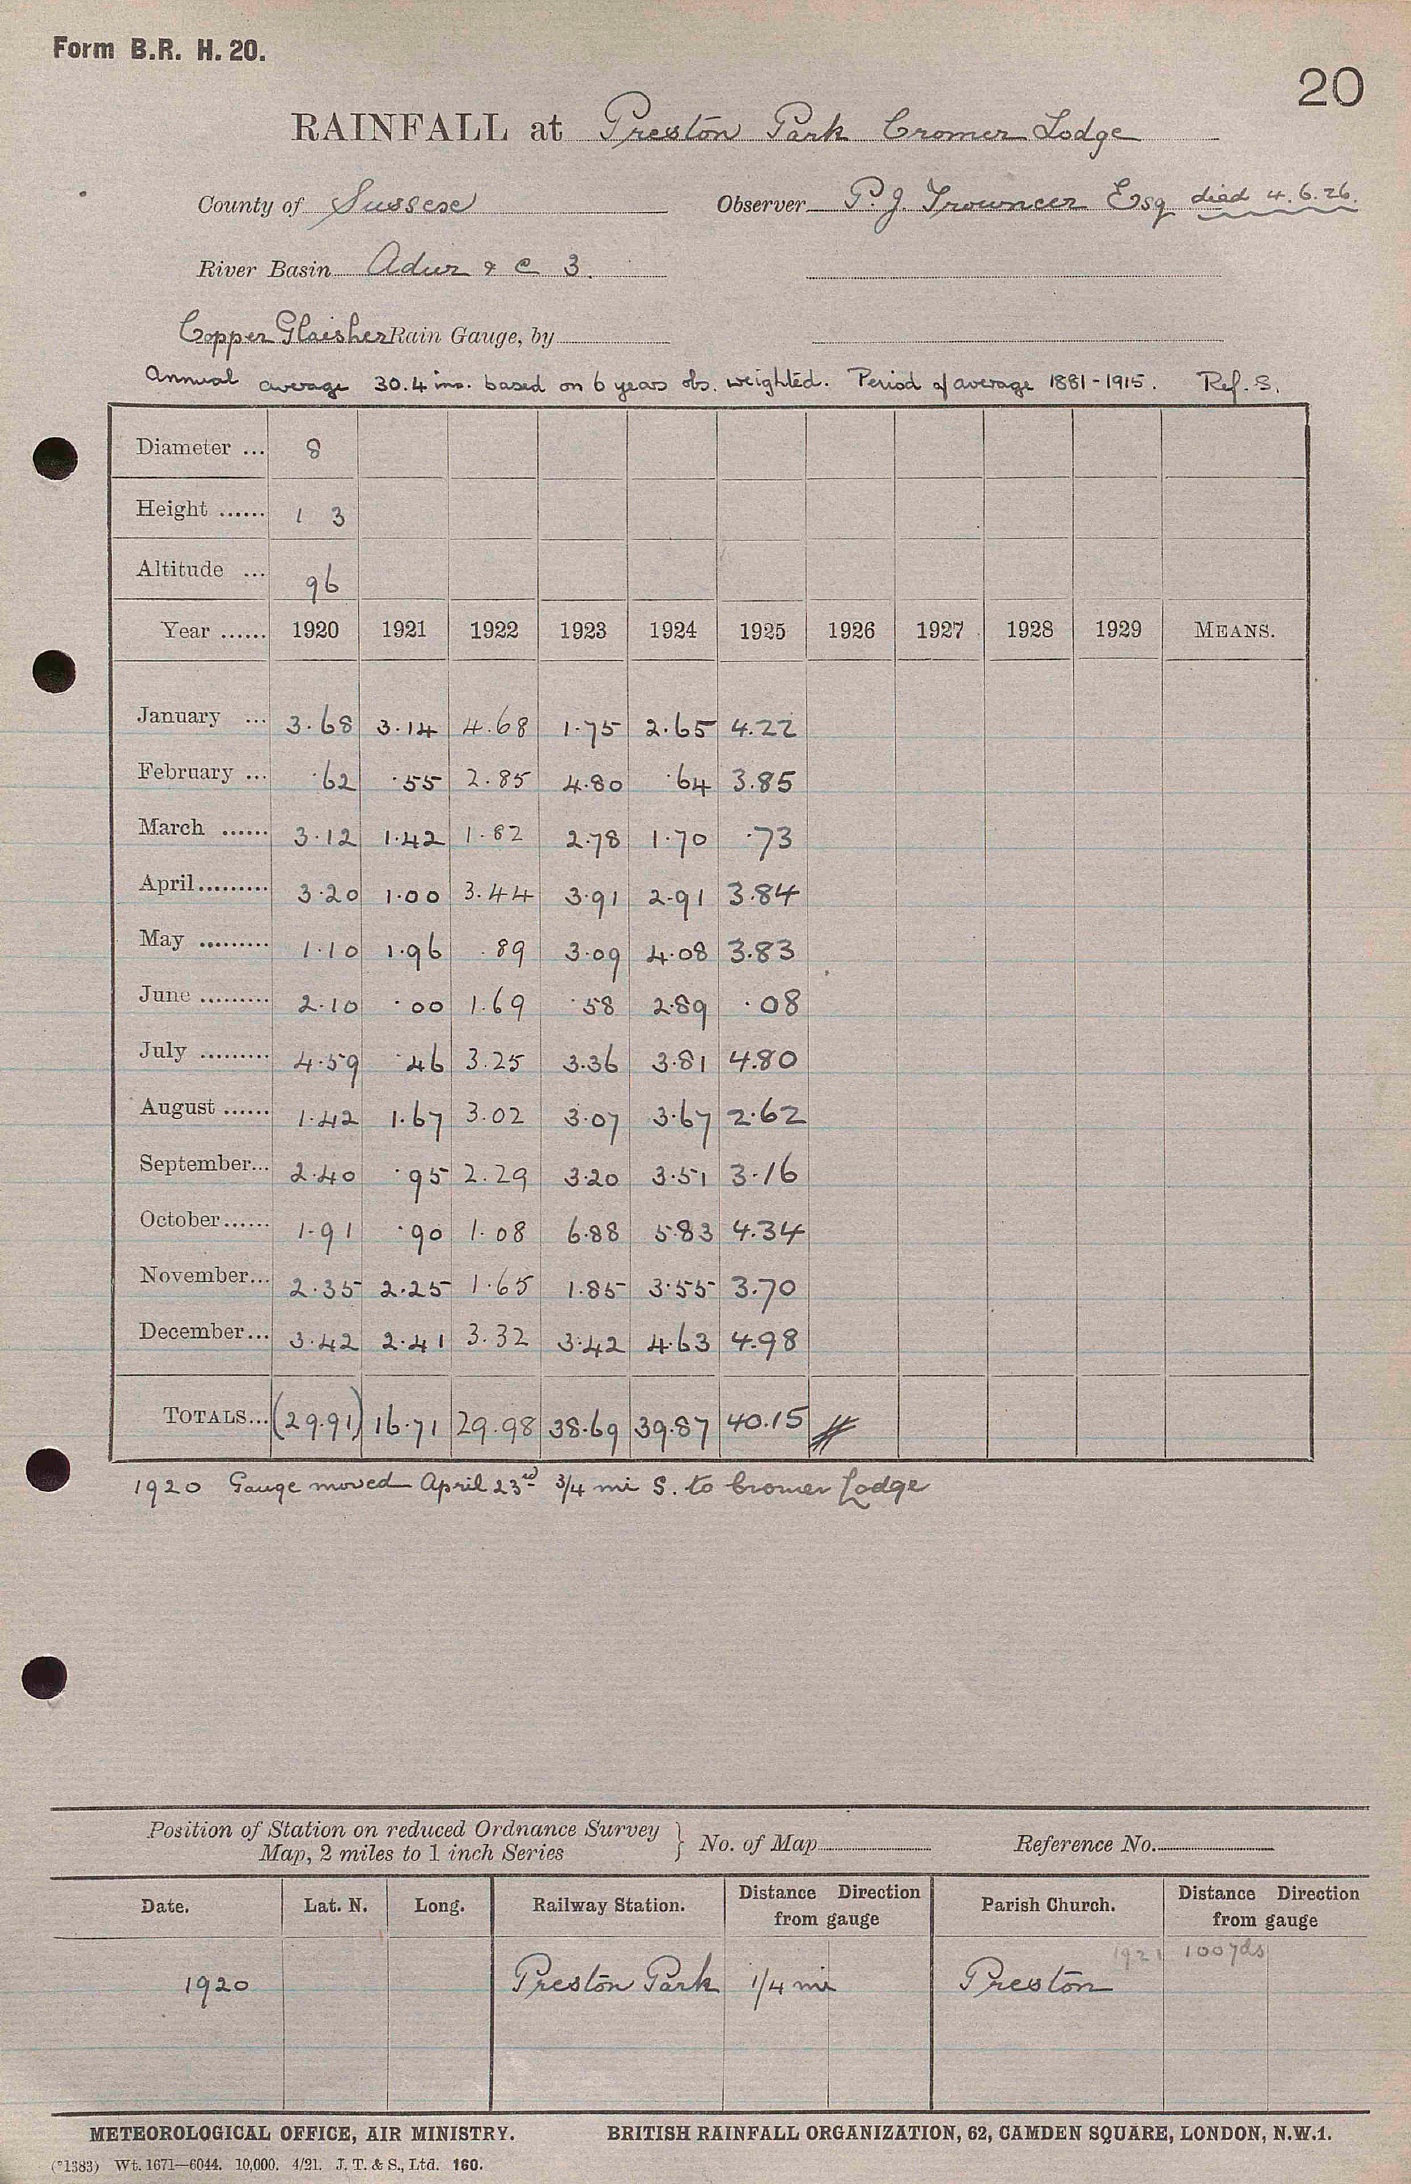 Form B.R. H. 20.
20
RAINFALL at Preston Park Cromer Lodge
County of Sussex Observer P. J. Trouncer Esq died 4.6.26.
River Basin Adur & c 3.
Copper Glaisher Rain Gauge, by
Annual average 30.4 ins. based on 6 years obs. weighted. Period of average 1881-1915. Ref. S.
Diameter ... 8
Height ...... 1 3
Altitude ... 96
Year ...... 1920 1921 1922 1923 1924 1925 1926 1927 1928 1929 MEANS.
January ... 3.68 3.14 4.68 1.75 2.65 4.22
February ... .62 .55 2.85 4.80 .64 3.85
March ...... 3.12 1.42 1.82 2.78 1.70 .73
April......... 3.20 1.00 3.44 3.91 2.91 3.84
May ......... 1.10 1.96 .89 3.09 4.08 3.83
June ......... 2.10 .00 1.69 .58 2.89 .08
July ......... 4.59 .46 3.25 3.36 3.81 4.80
August ...... 1.42 1.67 3.02 3.07 3.67 2.62
September... 2.40 .95 2.29 3.20 3.51 3.16
October...... 1.91 .90 1.08 6.88 5.83 4.34
November... 2.35 2.25 1.65 1.85 3.55 3.70
December... 3.42 2.41 3.32 3.42 4.63 4.98
TOTALS... (29.91) 16.71 29.98 38.69 39.87 40.15
1920 Gauge moved April 23rd 3/4 mi S. to Cromer Lodge
Position of Station on reduced Ordnance Survey
Map, 2 miles to 1 inch Series } No. of Map Reference No.
Date. Lat. N. Long. Railway Station. Distance Direction from gauge Parish Church. Distance Direction from gauge
1921 100 yds
1920 Preston Park 1/4 mi Preston
METEOROLOGICAL OFFICE, AIR MINISTRY. BRITISH RAINFALL ORGANIZATION, 62, CAMDEN SQUARE, LONDON, N.W.1.
(*1383) Wt. 1671—6044. 10,000. 4/21. J. T. & S., Ltd. 160.